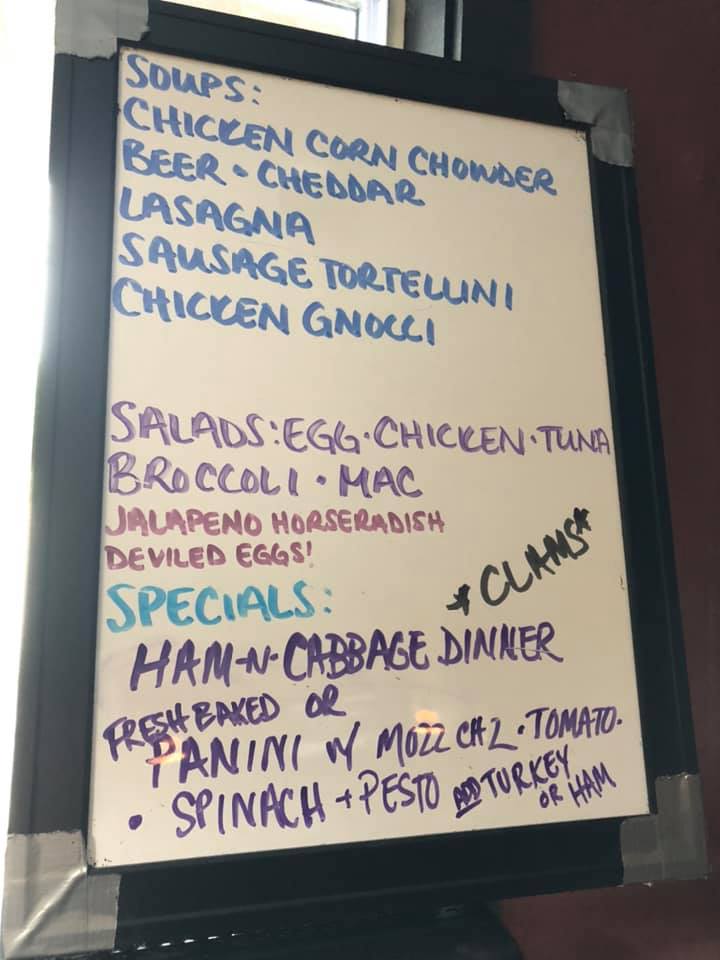 SOUPS:
CHICKEN CORN CHOWDER
BEER • CHEDDAR
LASAGNA
SAUSAGE TORTELLINI
CHICKEN GNOCCI
SALADS: EGG • CHICKEN • TUNA
BROCCOLI • MAC
JALAPENO HORSERADISH
DEVILED EGGS!
* CLAMS *
SPECIALS:
HAM-N-CABBAGE DINNER
FRESH BAKED OR
PANINI W/ MOZZ CHZ • TOMATO •
• SPINACH + PESTO ADD TURKEY
OR HAM